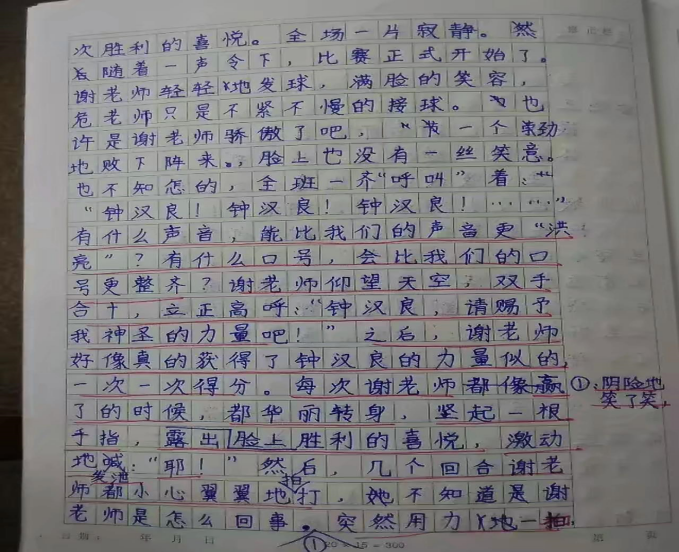 次胜利的喜悦。全场一片寂静。然
后随着一声令下，比赛正式开始了。
谢老师轻轻地发球，满脸的笑容，
危老师只是不紧不慢的接球。也
许是谢老师骄傲了吧，"第一个
地败下阵来。，脸上也没有一丝笑意。
也不知怎的，全班一齐"呼叫"着：
"钟汉良！钟汉良！钟汉良！……"
有什么声音，能比我们的声音更"洪
亮"？有什么口号，会比我们的口
号更整齐？谢老师仰望天空，双手
合十，立正高呼："钟汉良，请赐予
我神圣的力量吧！"之后，谢老师
好像真的获得了钟汉良的力量似的，
一次一次得分。每次谢老师都像赢
①：阴险地
笑了笑，
了的时候，都华丽转身，竖起一根
手指，露出脸上胜利的喜悦，激动
地喊："耶！"然后，几个回合谢老
师都小心翼翼地打，她不知道是谢
拍
老师是怎么回事。突然用力地一拍
①
20×15=300
年 月 日
第 页